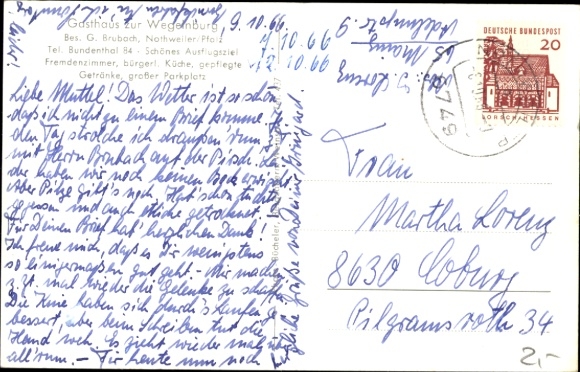 Gasthaus zur Wegelnburg
Bes. G. Brubach, Nothweiler/Pfalz
Tel. Bundenthal 84 - Schönes Ausflugsziel
Fremdenzimmer, bürgerl. Küche, gepflegte
Getränke, großer Parkplatz
9.10.66
7.10.66
12.10.66
Lorenz
65 Mainz
DEUTSCHE BUNDESPOST
20
LORSCH/HESSEN
6749
Liebe Muttel! Das Wetter ist so schön,
daß ich nicht zu einem Brief komme.
den Tag strolche ich draußen rum.
mit Herrn Brubach auf der Pirsch.
der haben wir noch keinen Bock erwischt.
Aber Pilze gibt's noch. Hat schön
gegessen und auch etliche getrocknet.
Für Deinen Brief hab' herzlichen Dank!
Ich freue mich, daß es Dir wenigstens
so einigermaßen gut geht. - Mir machen
z. Zt. mal wieder die Gelenke zu schaffen.
Die Knie haben sich durch's Laufen ge-
bessert, aber beim Schreiben tut die
Hand weh. Es zieht wieder mal
all'rum. - Für heute nun noch
herzliche Grüße von Deiner
Frau
Martha Lorenz
8630 Coburg
Pilgramsroth 34
2,-